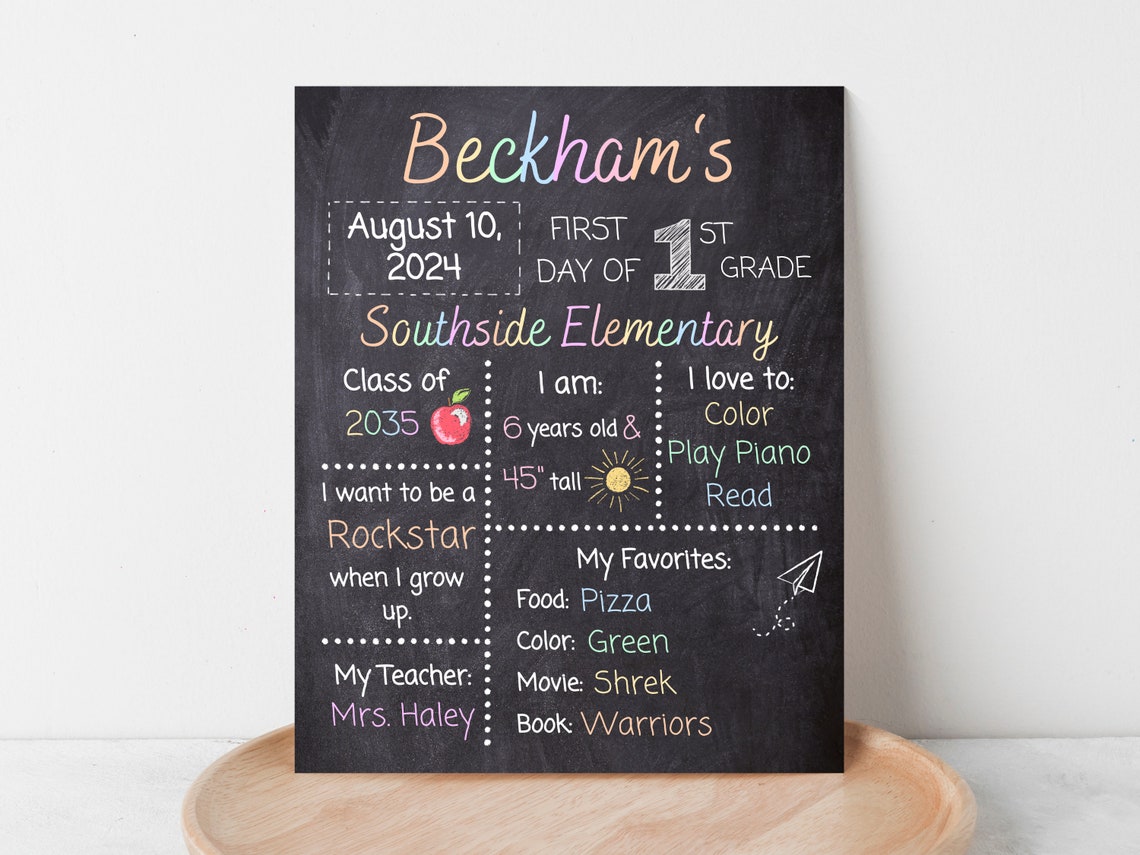 Beckham's
August 10,
2024
FIRST
DAY OF
1ST
GRADE
Southside Elementary
Class of
2035
I am:
6 years old &
45" tall
I love to:
Color
Play Piano
Read
I want to be a
Rockstar
when I grow
up.
My Favorites:
Food: Pizza
Color: Green
Movie: Shrek
Book: Warriors
My Teacher:
Mrs. Haley